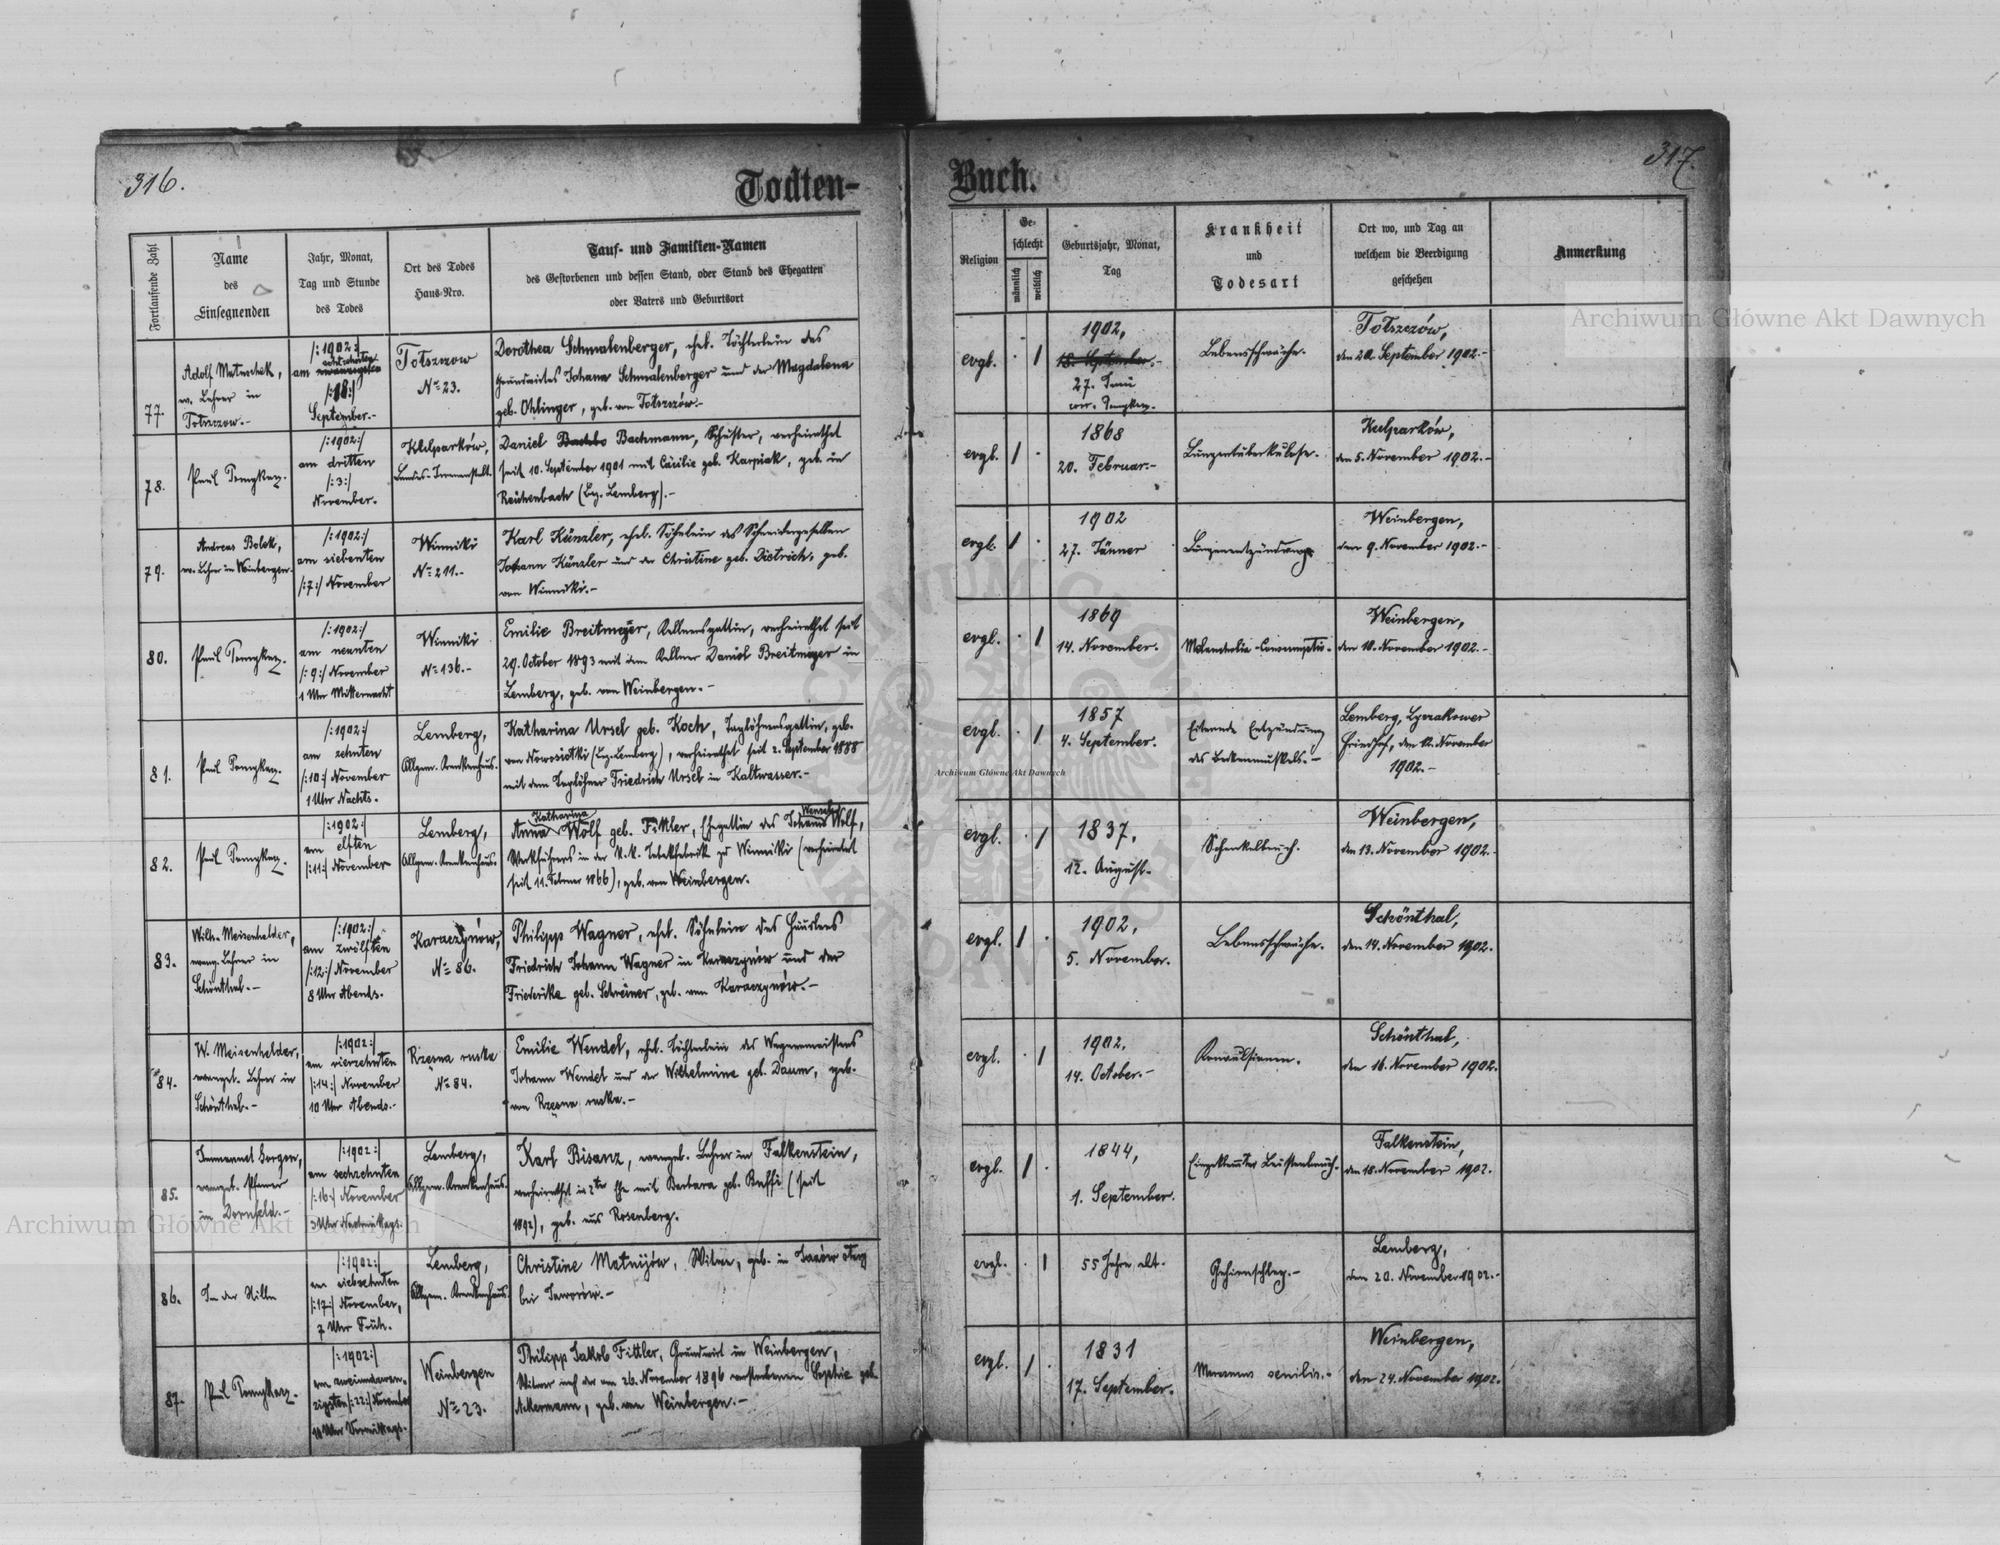 316.
Todten-
Fortlaufende Zahl
Name
des
Einsegnenden
Jahr, Monat,
Tag und Stunde
des Todes
Ort des Todes
Haus-Nro.
Tauf- und Familien-Namen
des Gestorbenen und dessen Stand, oder Stand des Ehegatten
oder Vaters und Geburtsort
77.
Adolf Matuschek,
ev. Lehrer in
Totszczow.-
/:1902:/
am achtzehnten
/:18:/
September.-
Totszczow
No 23.
Dorothea Schmalenberger, ehel. Töchterlein des
Grundwirtes Johann Schmalenberger und der Magdalena
geb. Ohlinger, geb. von Totszczów.-
78.
Paul
/:1902:/
am dritten
/:3:/
November.
Kulparków,
Landes-Irrenanstalt.
Daniel Bachmann, Schuster, verheirathet
seit 10. September 1901 mit Cäcilie geb. Karpiak, geb. in
Reichenbach (Bez. Lemberg).-
79.
Andreas Bolek,
ev. Lehrer in Weinbergen.
/:1902:/
am siebenten
/:7:/ November
Winniki
No 211.-
Karl Künzler, ehel. Söhnlein des Schneidergesellen
Johann Künzler und der Christine geb. Dietrich, geb.
von Winniki.-
80.
Paul
/:1902:/
am neunten
/:9:/ November
1 Uhr Mitternacht
Winniki
No 136.-
Emilie Breitmeyer, Kellnersgattin, verheirathet seit
29. October 1893 mit dem Kellner Daniel Breitmeyer in
Lemberg, geb. von Weinbergen.-
81.
Paul
/:1902:/
am zehnten
/:10:/ November
1 Uhr Nachts.
Lemberg,
Allgem. Krankenhaus.
Katharina Ursel geb. Koch, Taglöhnersgattin, geb.
von Nowosiolki (Bez. Lemberg), verheirathet seit 2. September 1888
mit dem Taglöhner Friedrich Ursel in Kaltwasser.-
82.
Paul
/:1902:/
am elften
/:11:/ November
Lemberg,
Allgem. Krankenhaus.
Katharina Wenzel
Anna Wolf geb. Fittler, Ehegattin des Johann Wolf,
Werkführers in der k.k. Tabakfabrik zu Winniki (verheiratet
seit 11. Februar 1866), geb. von Weinbergen.
83.
Wilh. Meisenhelder,
evang. Lehrer in
Schönthal.-
/:1902:/
am zwölften
/:12:/ November
8 Uhr Abends.
Karaczynów,
No 86.
Philipp Wagner, ehel. Söhnlein des Häuslers
Friedrich Johann Wagner in Karaczynów und der
Friederike geb. Schreiner, geb. von Karaczynów.-
84.
W. Meisenhelder,
evangel. Lehrer in
Schönthal.-
/:1902:/
am vierzehnten
/:14:/ November
10 Uhr Abends.-
Rzęsna ruska
No 84.
Emilie Wendel, ehel. Töchterlein des Wagnermeisters
Johann Wendel und der Wilhelmine geb. Daum, geb.
von Rzęsna ruska.-
85.
Immanuel Gorgon,
evangel. Pfarrer
in Dornfeld.-
/:1902:/
am sechzehnten
/:16:/ November
3 Uhr Nachmittags.
Lemberg,
Allgem. Krankenhaus.
Karl Bisanz, evangel. Lehrer in Falkenstein,
verheirathet in 2ter Ehe mit Barbara geb. Raffi (seit
1892), geb. aus Rosenberg.
86.
In der Stille
/:1902:/
am siebzehnten
/:17:/ November,
7 Uhr Früh.
Lemberg,
Allgem. Krankenhaus.
Christine Matwijów, Witwe, geb. in
bei Jaworów.-
87.
Paul
/:1902:/
am zweiundzwan-
zigsten /:22:/ November
Uhr Vormittags.
Weinbergen
No 23.
Philipp Jakob Fittler, Grundwirt in Weinbergen,
Witwer nach der am 26. November 1896 verstorbenen Sophie geb.
Ackermann, geb. von Weinbergen.-
Buch.
317.
Religion
Ge-
schlecht
männlich
weiblich
Geburtsjahr, Monat,
Tag
Krankheit
und
Todesart
Ort wo, und Tag an
welchem die Beerdigung
geschehen
Anmerkung
evgl. . 1
1902,
18. September.-
27. Juni
corr.
Lebensschwäche.
Totszczów,
den 20. September 1902.-
evgl. 1 .
1868
20. Februar.-
Lungentuberkulose.
Kulparków,
den 5. November 1902.-
evgl. 1 .
1902
27. Jänner
Lungenentzündung.
Weinbergen,
den 9. November 1902.-
evgl. . 1
1869
14. November.
Melancholia-Consumptio.
Weinbergen,
den 10. November 1902.-
evgl. . 1
1857
4. September.
Eiternde Entzündung
des Beckenmuskels.-
Lemberg, Lyczakower
Friedhof, den 12. November
1902.-
evgl. . 1
1837,
12. August.
Schenkelbruch.
Weinbergen,
den 13. November 1902.
evgl. 1 .
1902,
5. November.
Lebensschwäche.
Schönthal,
den 14. November 1902.
evgl. . 1
1902,
14. October.-
Konvulsionen.
Schönthal,
den 16. November 1902.
evgl. 1 .
1844,
1. September.
Eingeklemmter Leistenbruch.
Falkenstein,
den 18. November 1902.
evgl. . 1
55 Jahre alt.
Gehirnschlag.-
Lemberg,
den 20. November 1902.-
evgl. 1 .
1831
17. September.
Marasmus senilis.-
Weinbergen,
den 24. November 1902.
Archiwum Główne Akt Dawnych
Archiwum Główne Akt Dawnych
Archiwum Główne Akt Dawnych